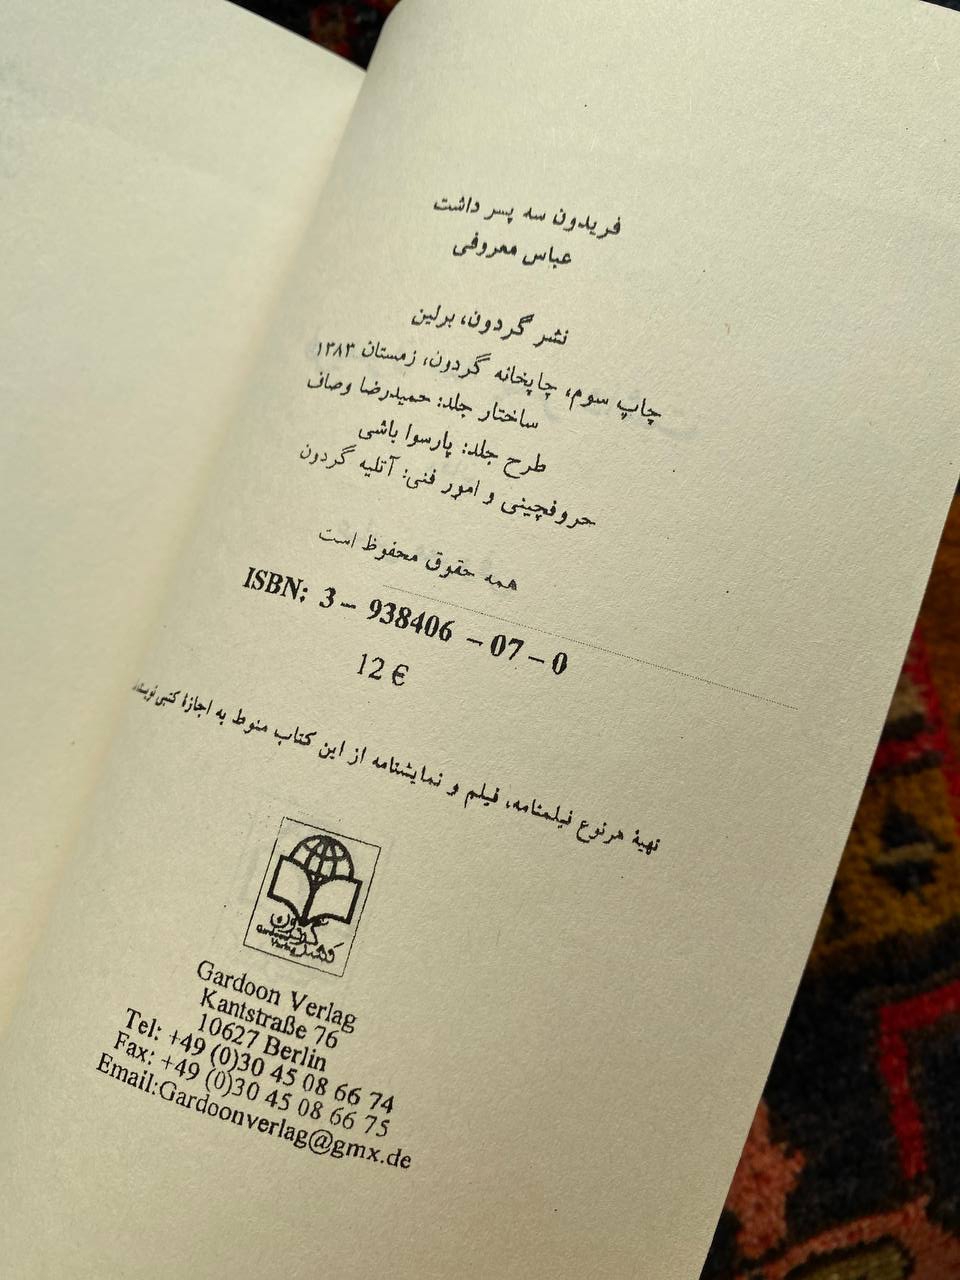 فریدون سه پسر داشت
عباس معروفی
نشر گردون، برلین
چاپ سوم، چاپخانه گردون، زمستان ۱۳۸۳
ساختار جلد: حمیدرضا وصاف
طرح جلد: پارسوا باشی
حروفچینی و امور فنی: آتلیه گردون
همه حقوق محفوظ است
ISBN: 3 – 938406 – 07 – 0
12 €
تهیهٔ هرنوع فیلمنامه، فیلم و نمایشنامه از این کتاب منوط به اجازهٔ کتبی
گردون
Gardoon
Verlag
نشر
Gardoon Verlag
Kantstraße 76
10627 Berlin
Tel: +49 (0)30 45 08 66 74
Fax: +49 (0)30 45 08 66 75
Email:Gardoonverlag@gmx.de